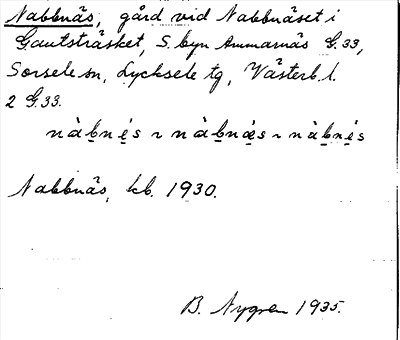 Nabbnäs, gård vid Nabbnäset i
Gautsträsket, S. byn Ammarnäs G.33,
Sorsele sn, Lycksele tg, Västerb. l.
2 G.33.
nàb̲nė̲s ~ nàb̲næ̲s ~ nàb̲nė̲s
Nabbnäs, kb. 1930.
B. Nygren 1935.